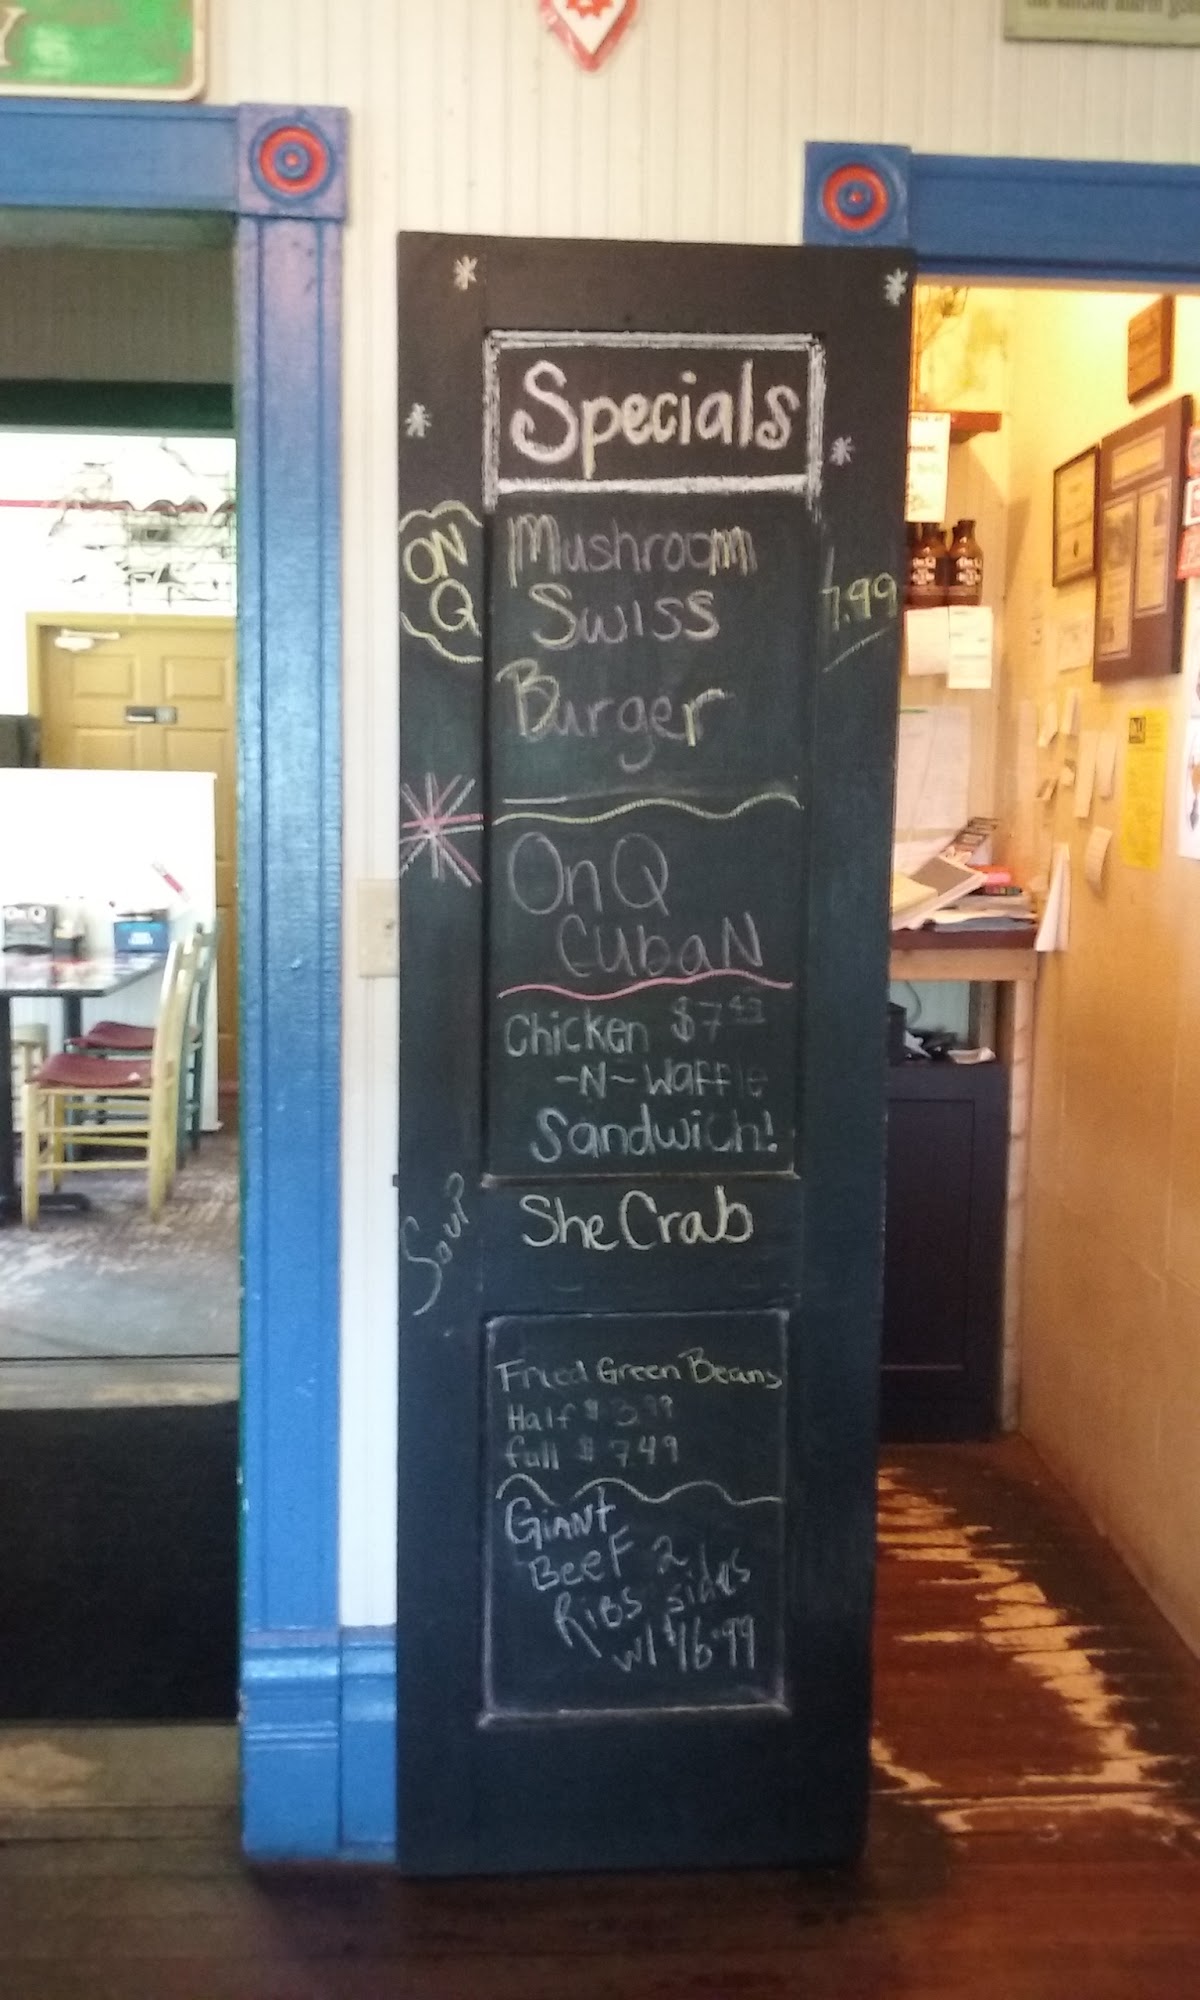 Y
the smoke alarm goes
Specials
ON
Q
Mushroom
Swiss
Burger
7.99
On Q
CubaN
Chicken $7
-N- Waffle
Sandwich!
Soup
She Crab
Fried Green Beans
Half $ 3.99
full $ 7.49
GiANT
BeeF 2
RiBS sides
w/ $16.99